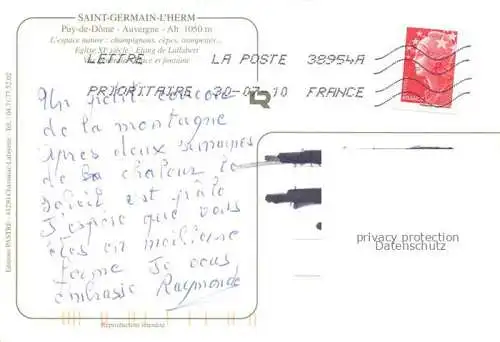 SAINT-GERMAIN-L'HERM
Puy-de-Dôme - Auvergne - Alt 1050 m
L'espace nature : champignons, cèpes, trompettes...
Eglise XIe siècle - Etang de
LETTRE LA POSTE 38954A
PRIORITAIRE 30-07 10 FRANCE
Un petit coucou
de la montagne
après deux semaines
de la chaleur le
soleil est pâle
J'espère que vous
êtes en meilleure
forme Je vous
embrasse Raymonde
Editions PASTRE - 63290
Reproduction interdite
privacy protection
Datenschutz